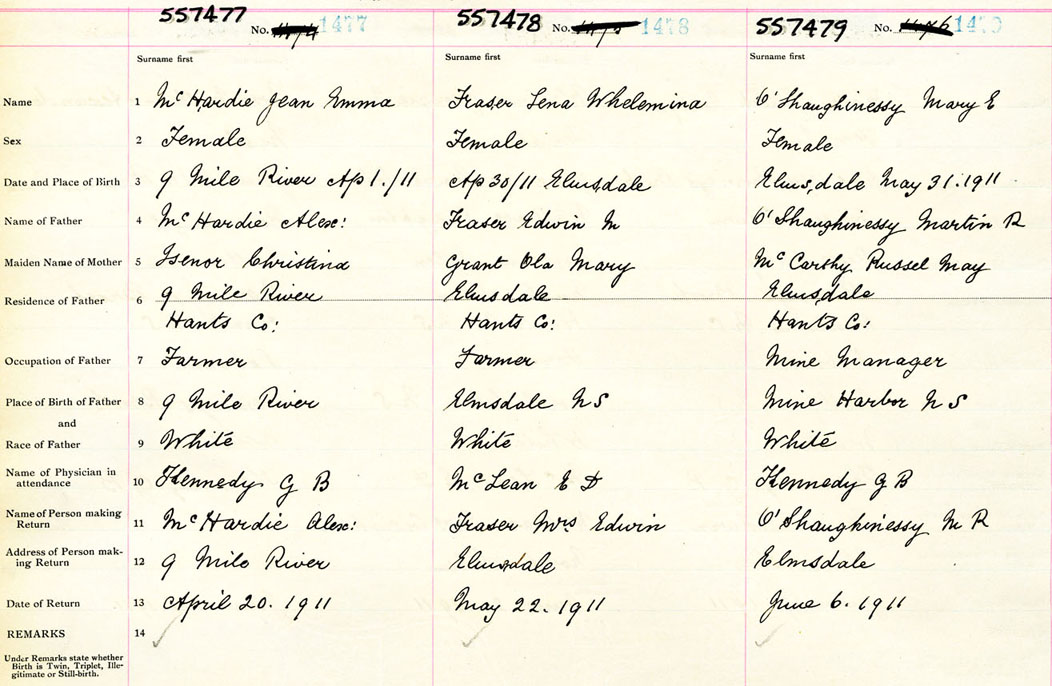 557477 No. 1477 557478 No. 1478 557479 No. 1479
Surname first Surname first Surname first
Name 1 McHardie Jean Emma Fraser Lena Whelemina O'Shaughinessy Mary E
Sex 2 Female Female Female
Date and Place of Birth 3 9 Mile River Ap 1./11 Ap 30/11 Elmsdale Elmsdale May 31.1911
Name of Father 4 McHardie Alex: Fraser Edwin M O'Shaughinessy Martin R
Maiden Name of Mother 5 Isenor Christina Grant Ola Mary McCarthy Russel May
Residence of Father 6 9 Mile River Elmsdale Elmsdale
Hants Co: Hants Co: Hants Co:
Occupation of Father 7 Farmer Farmer Mine Manager
Place of Birth of Father 8 9 Mile River Elmsdale N S Mine Harbor N S
and
Race of Father 9 White White White
Name of Physician in
attendance 10 Kennedy G B McLean E D Kennedy G B
Name of Person making
Return 11 McHardie Alex: Fraser Mrs Edwin O'Shaughinessy M R
Address of Person mak-
ing Return 12 9 Mile River Elmsdale Elmsdale
Date of Return 13 April 20. 1911 May 22. 1911 June 6. 1911
REMARKS 14
Under Remarks state whether
Birth is Twin, Triplet, Ille-
gitimate or Still-birth.